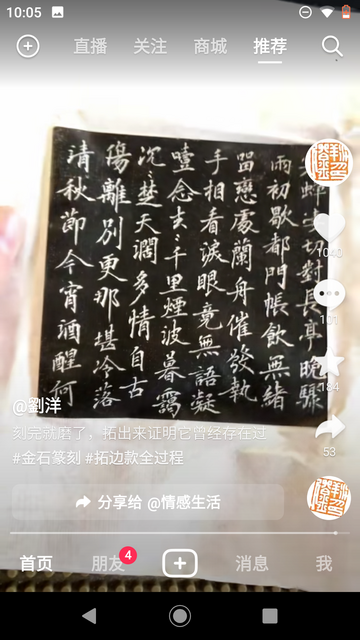 10:05
直播 关注 商城 推荐
蟬凄切對長亭晚驟
雨初歇都門帳飲無緒
畱戀處蘭舟催發執
手相看淚眼竟無語凝
噎念去〻千里煙波暮靄
沉〻楚天濶多情自古
傷離別更那堪冷落
清秋節今宵酒醒何
184
53
@劉洋
刻完就磨了，拓出来证明它曾经存在过
#金石篆刻 #拓边款全过程
分享给 @情感生活
首页 朋友 4 消息 我